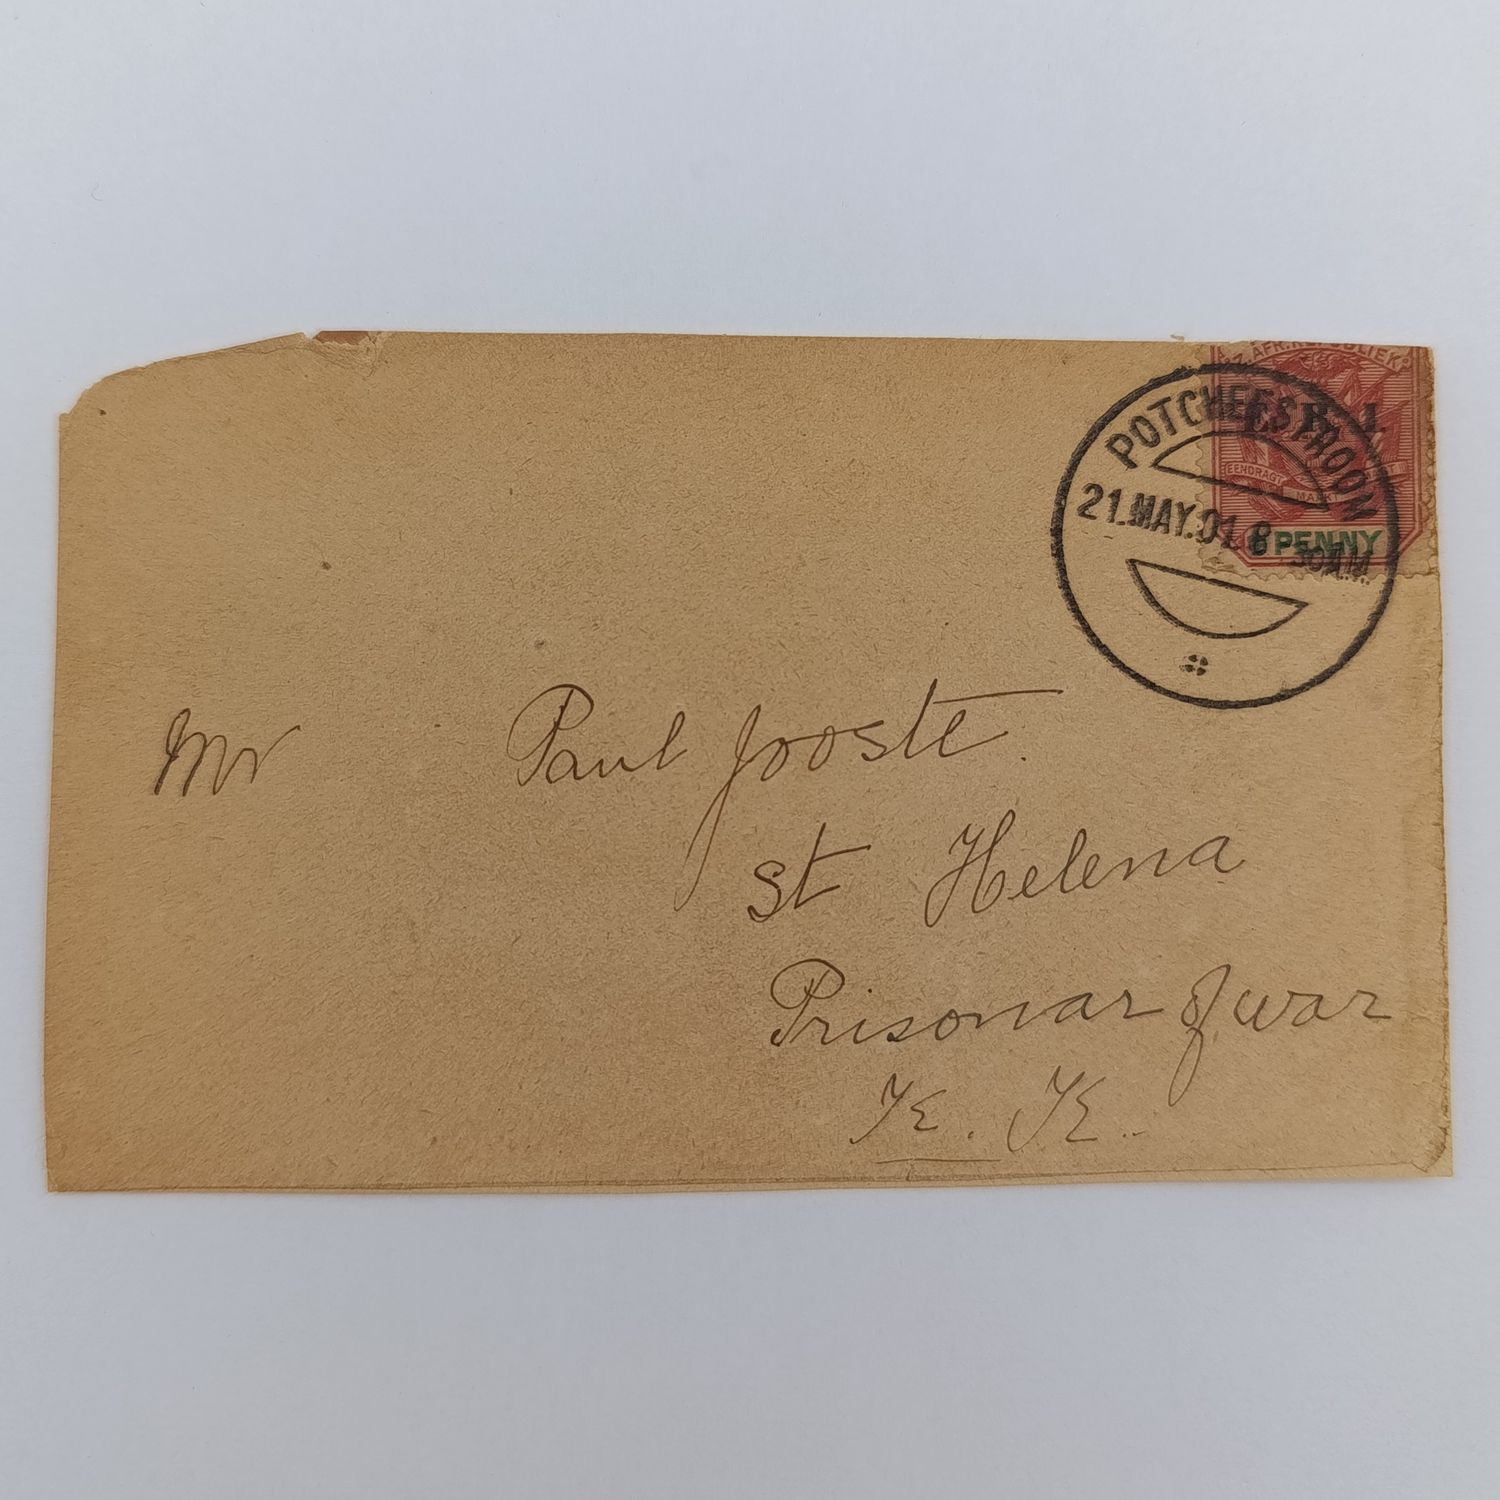 Z. AFR. REPUBLIEK
V. R. I.
EENDRAGT MAAKT
PENNY
POTCHEFSTROOM
21.MAY.01. 8-30AM.
Mr Paul Jooste.
St Helena
Prisonar of war
K. K.